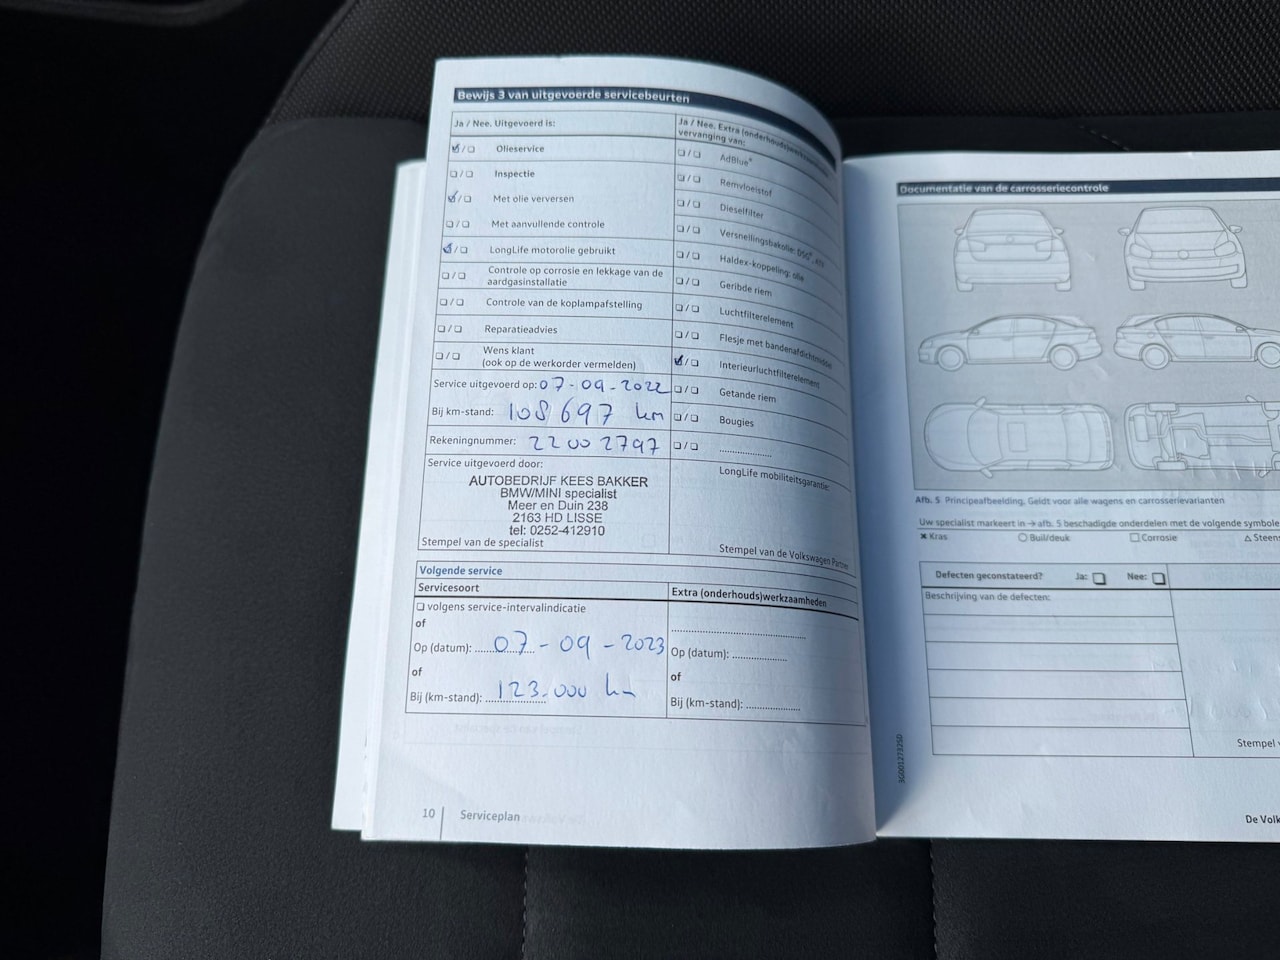 Bewijs 3 van uitgevoerde servicebeurten
Ja / Nee. Uitgevoerd is:
Olieservice
Inspectie
Met olie verversen
Met aanvullende controle
LongLife motorolie gebruikt
Controle op corrosie en lekkage van de
aardgasinstallatie
Controle van de koplampafstelling
Reparatieadvies
Wens klant
(ook op de werkorder vermelden)
Service uitgevoerd op: 07-09-2022
Bij km-stand: 108697 km
Rekeningnummer: 22002797
Service uitgevoerd door:
AUTOBEDRIJF KEES BAKKER
BMW/MINI specialist
Meer en Duin 238
2163 HD LISSE
tel: 0252-412910
Stempel van de specialist
Ja / Nee. Extra (onderhouds)werkzaamheden
vervanging van:
AdBlue®
Remvloeistof
Dieselfilter
Versnellingsbakolie: DSG®, 4x4
Haldex-koppeling: olie
Geribde riem
Luchtfilterelement
Flesje met bandenafdichtmiddel
Interieurluchtfilterelement
Getande riem
Bougies
LongLife mobiliteitsgarantie:
Stempel van de Volkswagen Partner
Volgende service
Servicesoort
volgens service-intervalindicatie
of
Op (datum): 07-09-2023
of
Bij (km-stand): 123.000 km
Extra (onderhouds)werkzaamheden
Op (datum):
of
Bij (km-stand):
10 Serviceplan
Documentatie van de carrosseriecontrole
Afb. 5 Principeafbeelding. Geldt voor alle wagens en carrosserievarianten
Uw specialist markeert in → afb. 5 beschadigde onderdelen met de volgende symbole
× Kras ○ Buil/deuk □ Corrosie △ Steens
Defecten geconstateerd? Ja: Nee:
Beschrijving van de defecten:
Stempel v
3G0012732SD
De Volk